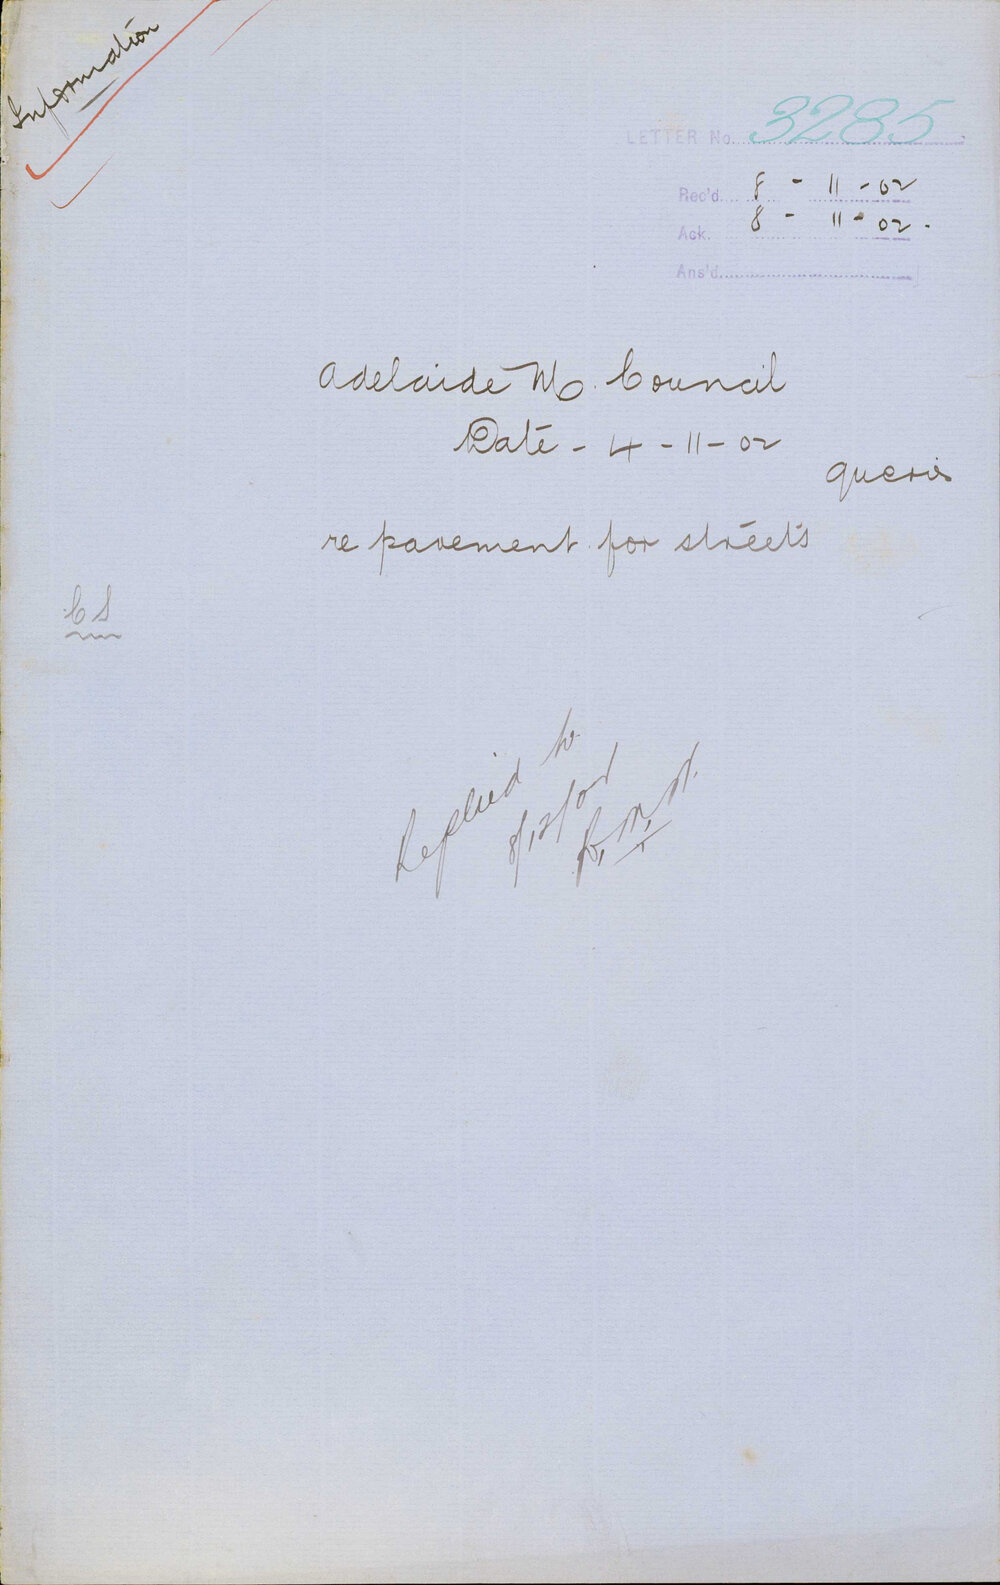 Information
LETTER No. 3285
Rec'd 8 - 11 - 02
Ack. 8 - 11 - 02.
Ans'd
Adelaide M. Council
Date - 4 - 11 - 02
queries
re pavement for streets
CS
Replied to
8/12/02
R.M.